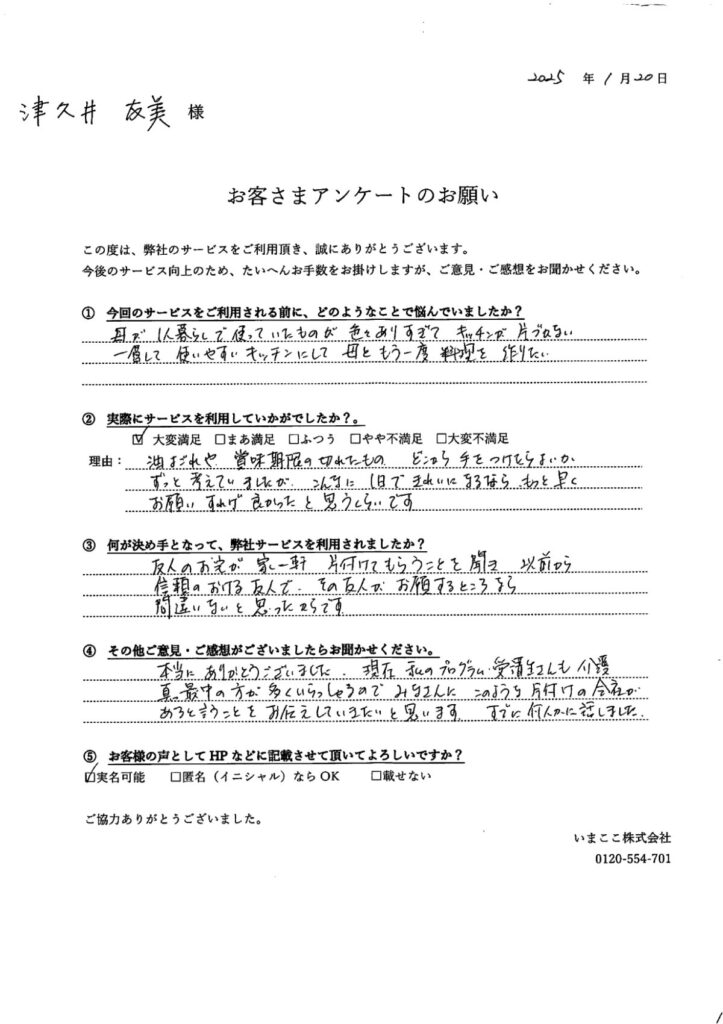 2025 年 1 月 20 日
津久井 友美 様
お客さまアンケートのお願い
この度は、弊社のサービスをご利用頂き、誠にありがとうございます。
今後のサービス向上のため、たいへんお手数をお掛けしますが、ご意見・ご感想をお聞かせください。
① 今回のサービスをご利用される前に、どのようなことで悩んでいましたか？
母が 1人暮らしで使っていたものが 色々ありすぎて キッチンが 片づかない
一層して 使いやすいキッチンにして 母と もう一度 料理を 作りたい
② 実際にサービスを利用していかがでしたか？。
☑ 大変満足 □まあ満足 □ふつう □やや不満足 □大変不満足
理由： 油よごれや 賞味期限の切れたもの どこから 手をつけたらよいか
ずっと 考えていましたが こんなに 1日で きれいに なるなら もっと早く
お願いすれば 良かったと思うくらいです
③ 何が決め手となって、弊社サービスを利用されましたか？
友人のお宅が 家一軒 片付けてもらうことを 聞き 以前から
信頼のおける友人で、その友人が お願するところなら
間違いないと思ったからです
④ その他ご意見・ご感想がございましたらお聞かせください。
本当に ありがとうございました。現在 私のプログラム受講生さんも 介護
真最中の方が多くいらっしゃるので みなさんに このような 片付けの会社が
あると言うことを お伝えしていきたいと思います すでに 何人かに話しました。
⑤ お客様の声として HP などに記載させて頂いてよろしいですか？
☑実名可能 □匿名（イニシャル）なら OK □載せない
ご協力ありがとうございました。
いまここ株式会社
0120-554-701